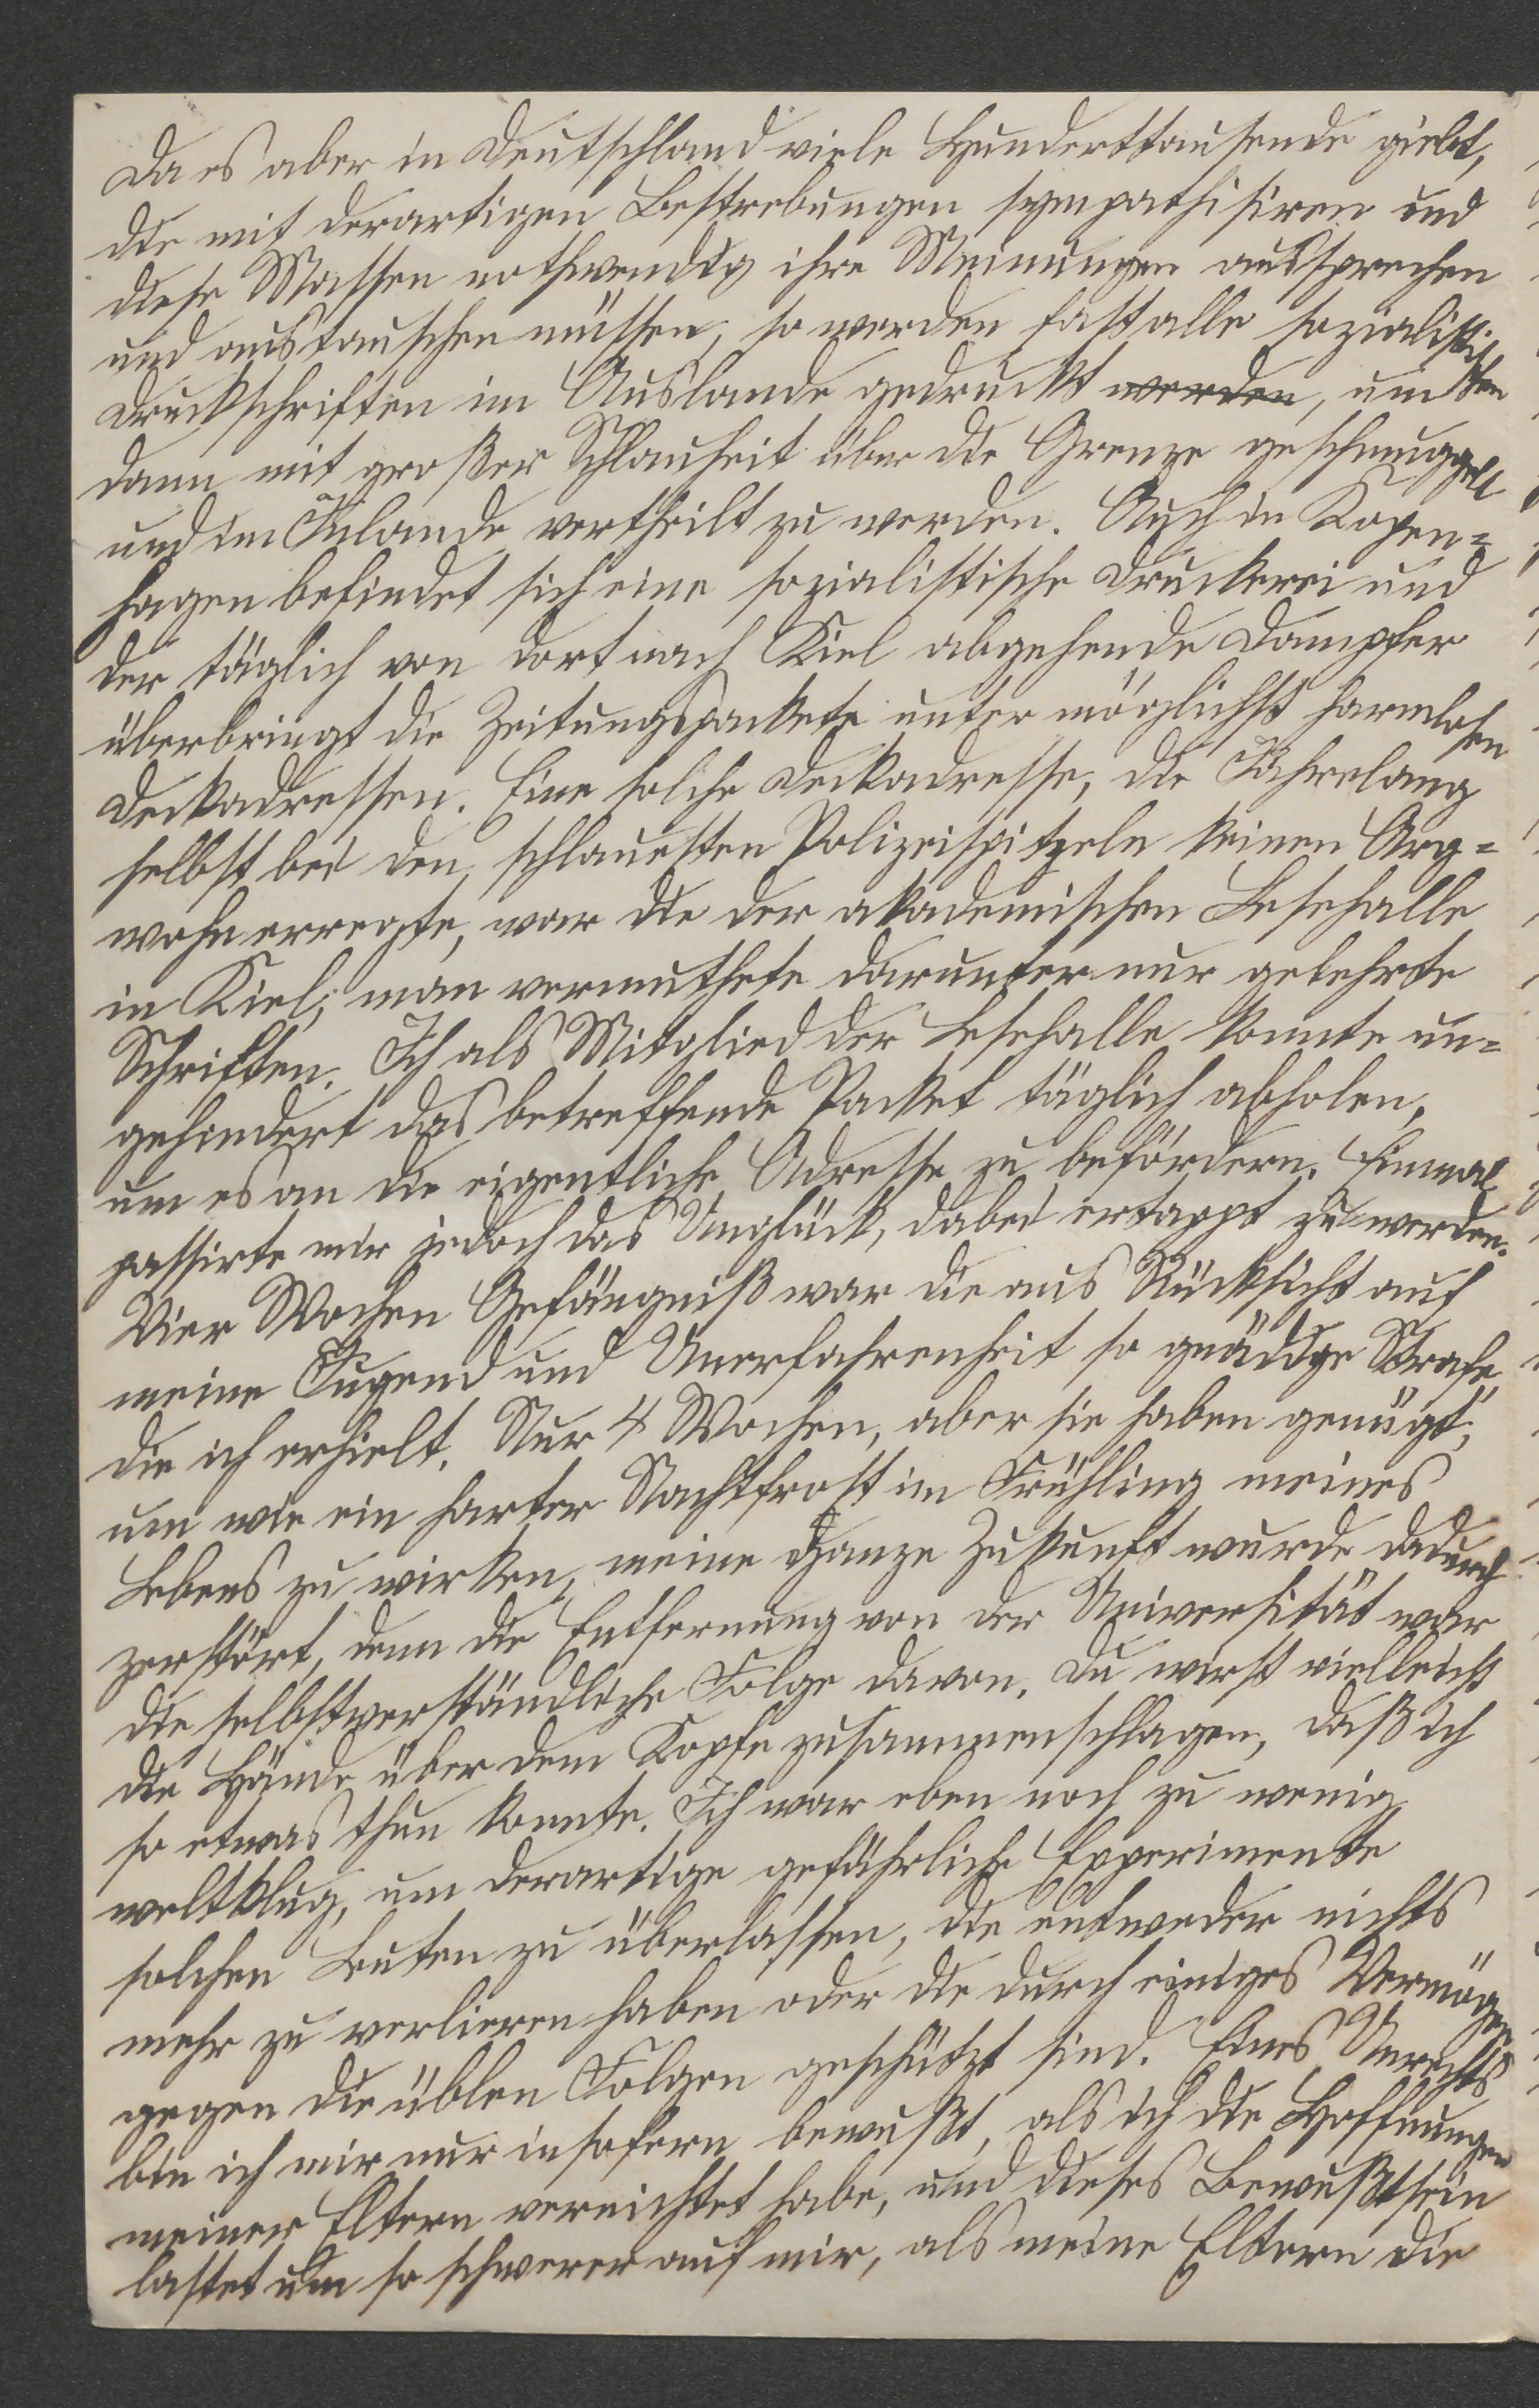 Da es aber in Deutschland viele Hunderttausende giebt,
die mit derartigen Bestrebungen sympathisiren und
diese Massen nothwendig ihre Meinungen aussprechen
und austauschen müssen, so werden fast alle sozialistischen
Druckschriften im Auslande gedruckt werden, um
dann mit großer Schlauheit über die Grenze geschmuggelt
und im Inlande vertheilt zu werden. Auch in Kopen=
hagen befindet sich eine sozialistische Druckerei und
der täglich von dort nach Kiel abgehende Dampfer
überbringt die Zeitungspackete unter möglichst harmlosen
Deckadressen. Eine solche Deckadresse, die Jahrelang
selbst bei den schlauesten Polizeispitzeln keinen Arg=
wohn erregte, war die der akademischen Lesehalle
in Kiel; man vermuthete darunter nur gelehrte
Schriften. Ich als Mitglied der Lesehalle konnte un=
gehindert das betreffende Packet täglich abholen,
um es an die eigentliche Adresse zu befördern. Einmal
passirte mir jedoch das Unglück, dabei ertappt zu werden.
Vier Wochen Gefängniß war die aus Rücksicht auf
meine Jugend und Unerfahrenheit so gnädige Strafe,
die ich erhielt. Nur 4 Wochen, aber sie haben genügt,
um wie ein harter Nachtfrost im Frühling meines
Lebens zu wirken, meine ganze Zukunft wurde dadurch
zerstört, denn die Entfernung von der Universität war
die selbstverständliche Folge davon. Du wirst vielleicht
die Hände über dem Kopfe zusammenschlagen, daß ich
so etwas thun konnte. Ich war eben noch zu wenig
weltklug, um derartige gefährliche Experimente
solchen Leuten zu überlassen, die entweder nichts
mehr zu verlieren haben oder die durch einiges Vermögen
gegen die üblen Folgen geschützt sind. Eines Unrechts
bin ich mir nur insofern bewußt, als ich die Hoffnungen
meiner Eltern vernichtet habe, und dieses Bewußtsein
lastet um so schwerer auf mir, als meine Eltern die